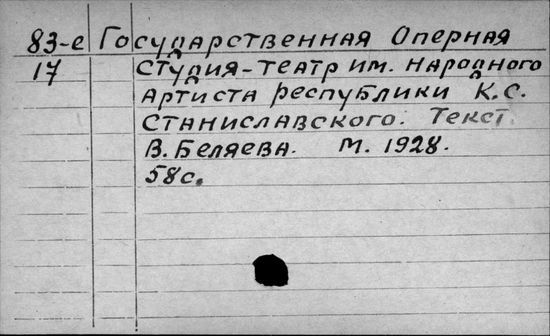 83-е Государственная Оперная
17 Студия-театр им. народного
артиста республики К.С.
Станиславского. Текст.
В. Беляева. М. 1928.
58с.